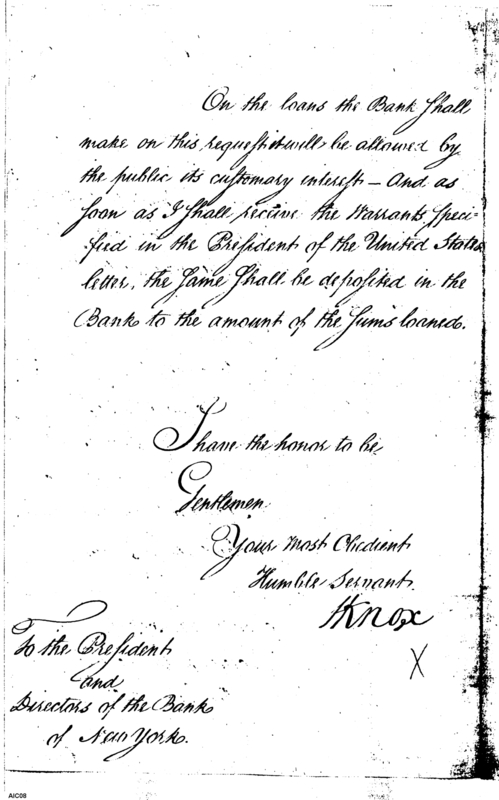 On the loans the Bank shall
make on this request it will be allowed by
the public its customary interest – And as
soon as I shall receive the Warrants speci-
fied in the President of the United States
letter, the same shall be deposited in the
Bank to the amount of the sums loaned.
I have the honor to be
Gentlemen
Your Most Obedient
Humble Servant.
HKnox
To the President
and
Directors of the Bank
of New York.
X
AIC08